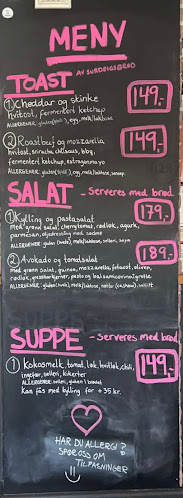 MENY
TOAST AV SURDEIGSBRØD
① Cheddar og skinke 149,-
hvitost, fermentert ketchup
ALLERGENER: gluten(hvete), egg, melk/laktose
② Roastbeef og mozzarella 149,-
hvitost, sriracha chilisaus, bbq,
fermentert ketchup, estragonmayo
ALLERGENER: gluten(hvete), egg, melk/laktose, sennep
SALAT - Serveres med brød
① Kylling og pastasalat 179,-
m/ grønn salat, cherrytomat, rødløk, agurk,
parmesan, dijondressing med sødme
ALLERGENER: gluten (hvete), melk/laktose, selleri, soya
② Avokado og tomatsalat 189,-
med grønn salat, quinoa, mozzarella, fetaost, oliven,
rødløk, gresskarkjerner, pesto og balsamicovinaigrette
ALLERGENER: gluten (hvete), melk/laktose, nøtter (cashew), sulfitt
SUPPE - Serveres med brød
① Kokosmelk, tomat, løk, hvitløk, chili, 149,-
ingefær, selleri, kikerter
ALLERGENER: selleri, gluten i brødet
Kan fås med kylling for +35 kr.
HAR DU ALLERGI?
SPØR OSS OM
TILPASNINGER